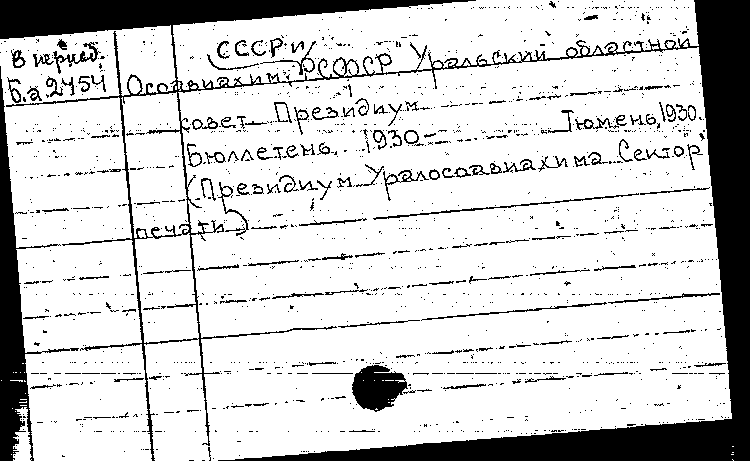 В период.
Б.а.2454
СССР и
Осоавиахим РСФСР Уральский областной
совет Президиум
Бюллетень. 1930– Тюмень, 1930.
(Президиум Уралосоавиахима Сектор
печати)